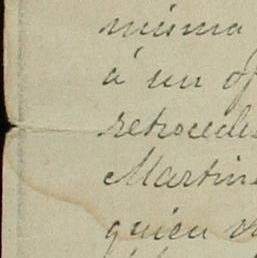 misma
á un of
retroceder
Martine
quien